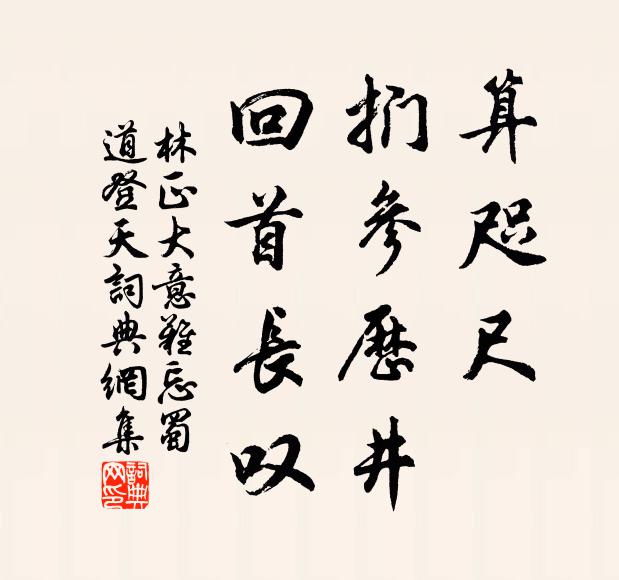 算咫尺
捫參歷井
回首長叹
林正大意難忘蜀
道登天詞典網集
詞典
网印